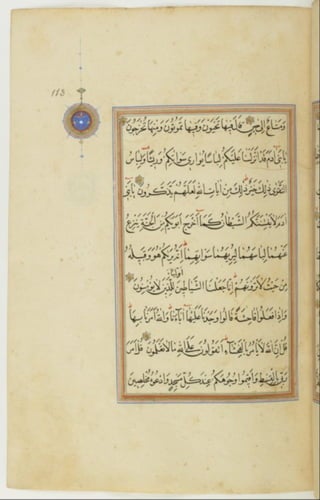 113
ومتاع إلى حين قال فيها تحيون وفيها تموتون ومنها تخرجون
يا بني آدم قد أنزلنا عليكم لباسا يواري سوآتكم وريشا ولباس
التقوى ذلك خير ذلك من آيات الله لعلهم يذكرون يا بني
آدم لا يفتننكم الشيطان كما أخرج أبويكم من الجنة ينزع
عنهما لباسهما ليريهما سوآتهما إنه يريكم هو وقبيله
من حيث لا ترونهم إنا جعلنا الشياطين أولياء للذين لا يؤمنون
وإذا فعلوا فاحشة قالوا وجدنا عليها آباءنا والله أمرنا بها
قل إن الله لا يأمر بالفحشاء أتقولون على الله ما لا تعلمون قل أمر
ربي بالقسط وأقيموا وجوهكم عند كل مسجد وادعوه مخلصين